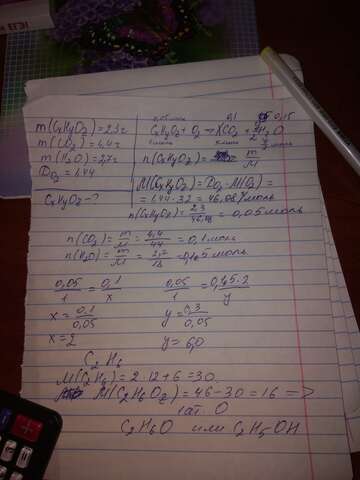 m(CxHyOz)=2,3г
m(CO2)=4,4г
m(H2O)=2,7г
DO2=1,44
CxHyOz-?
0,05моль 0,1 0,15
CxHyOz + O2 → XCO2 + y/2 H2O
1моль Xмоль y/2 моль
n(CxHyOz)= m/M
M(CxHyOz)=DO2·M(O2)=
=1,44·32=46,08г/моль
n(CxHyOz)=2,3/46,08=0,05моль
n(CO2)=m/M=4,4/44=0,1моль
n(H2O)=m/M=2,7/18=0,15моль
0,05/1=0,1/x 0,05/1=0,15·2/y
x=0,1/0,05 y=0,3/0,05
x=2 y=6,0
C2H6
M(C2H6)=2·12+6=30
M(C2H6Oz)=46-30=16 =>
1ат. O
C2H6O или C2H5OH